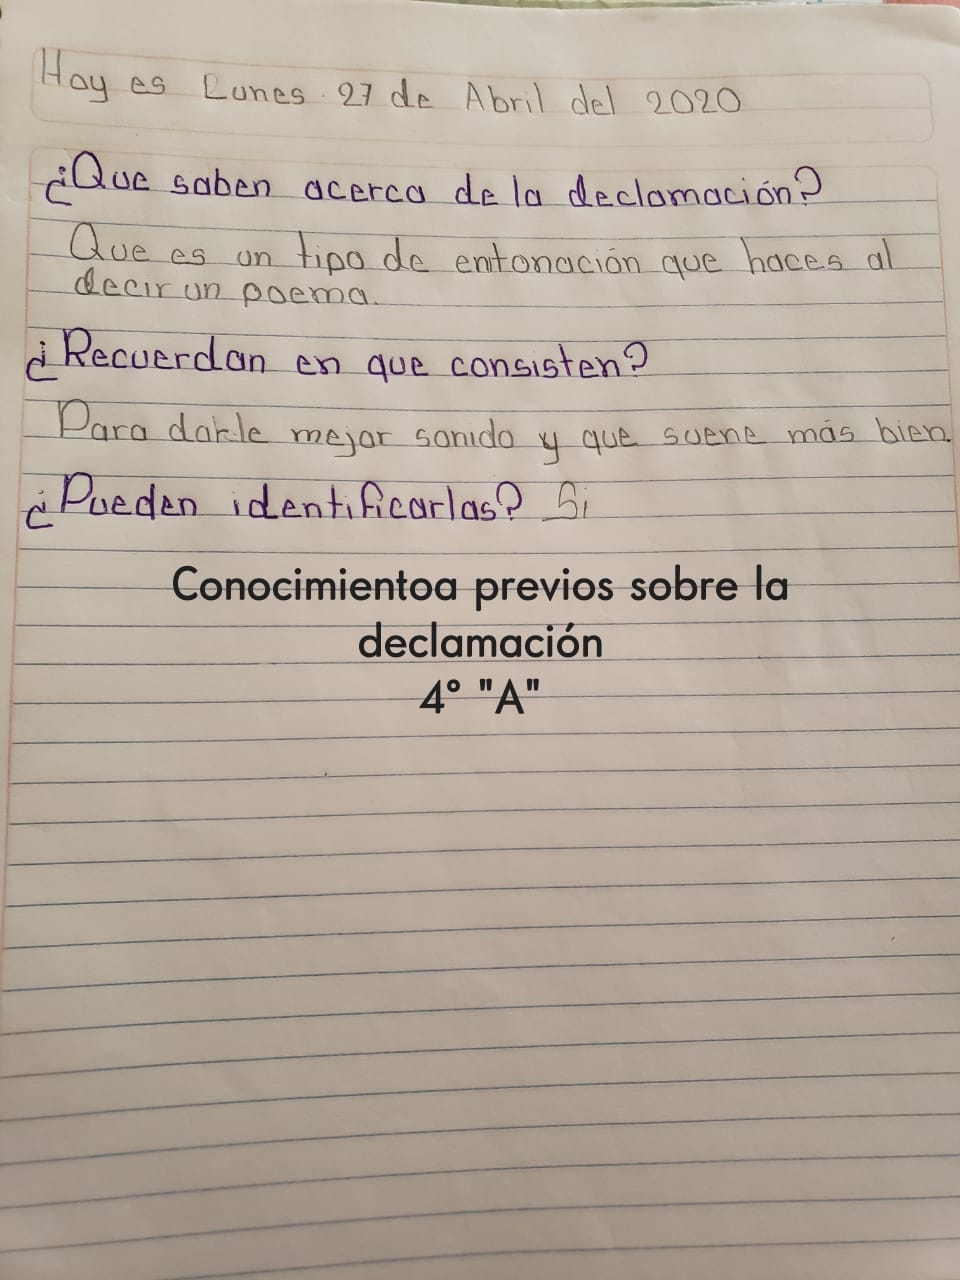 Hoy es Lunes 27 de Abril del 2020
¿Que saben acerca de la declamación?
Que es un tipo de entonación que haces al
decir un poema.
¿Recuerdan en que consisten?
Para darle mejor sonido y que suene más bien.
¿Pueden identificarlas? Si
Conocimientoa previos sobre la
declamación
4° "A"